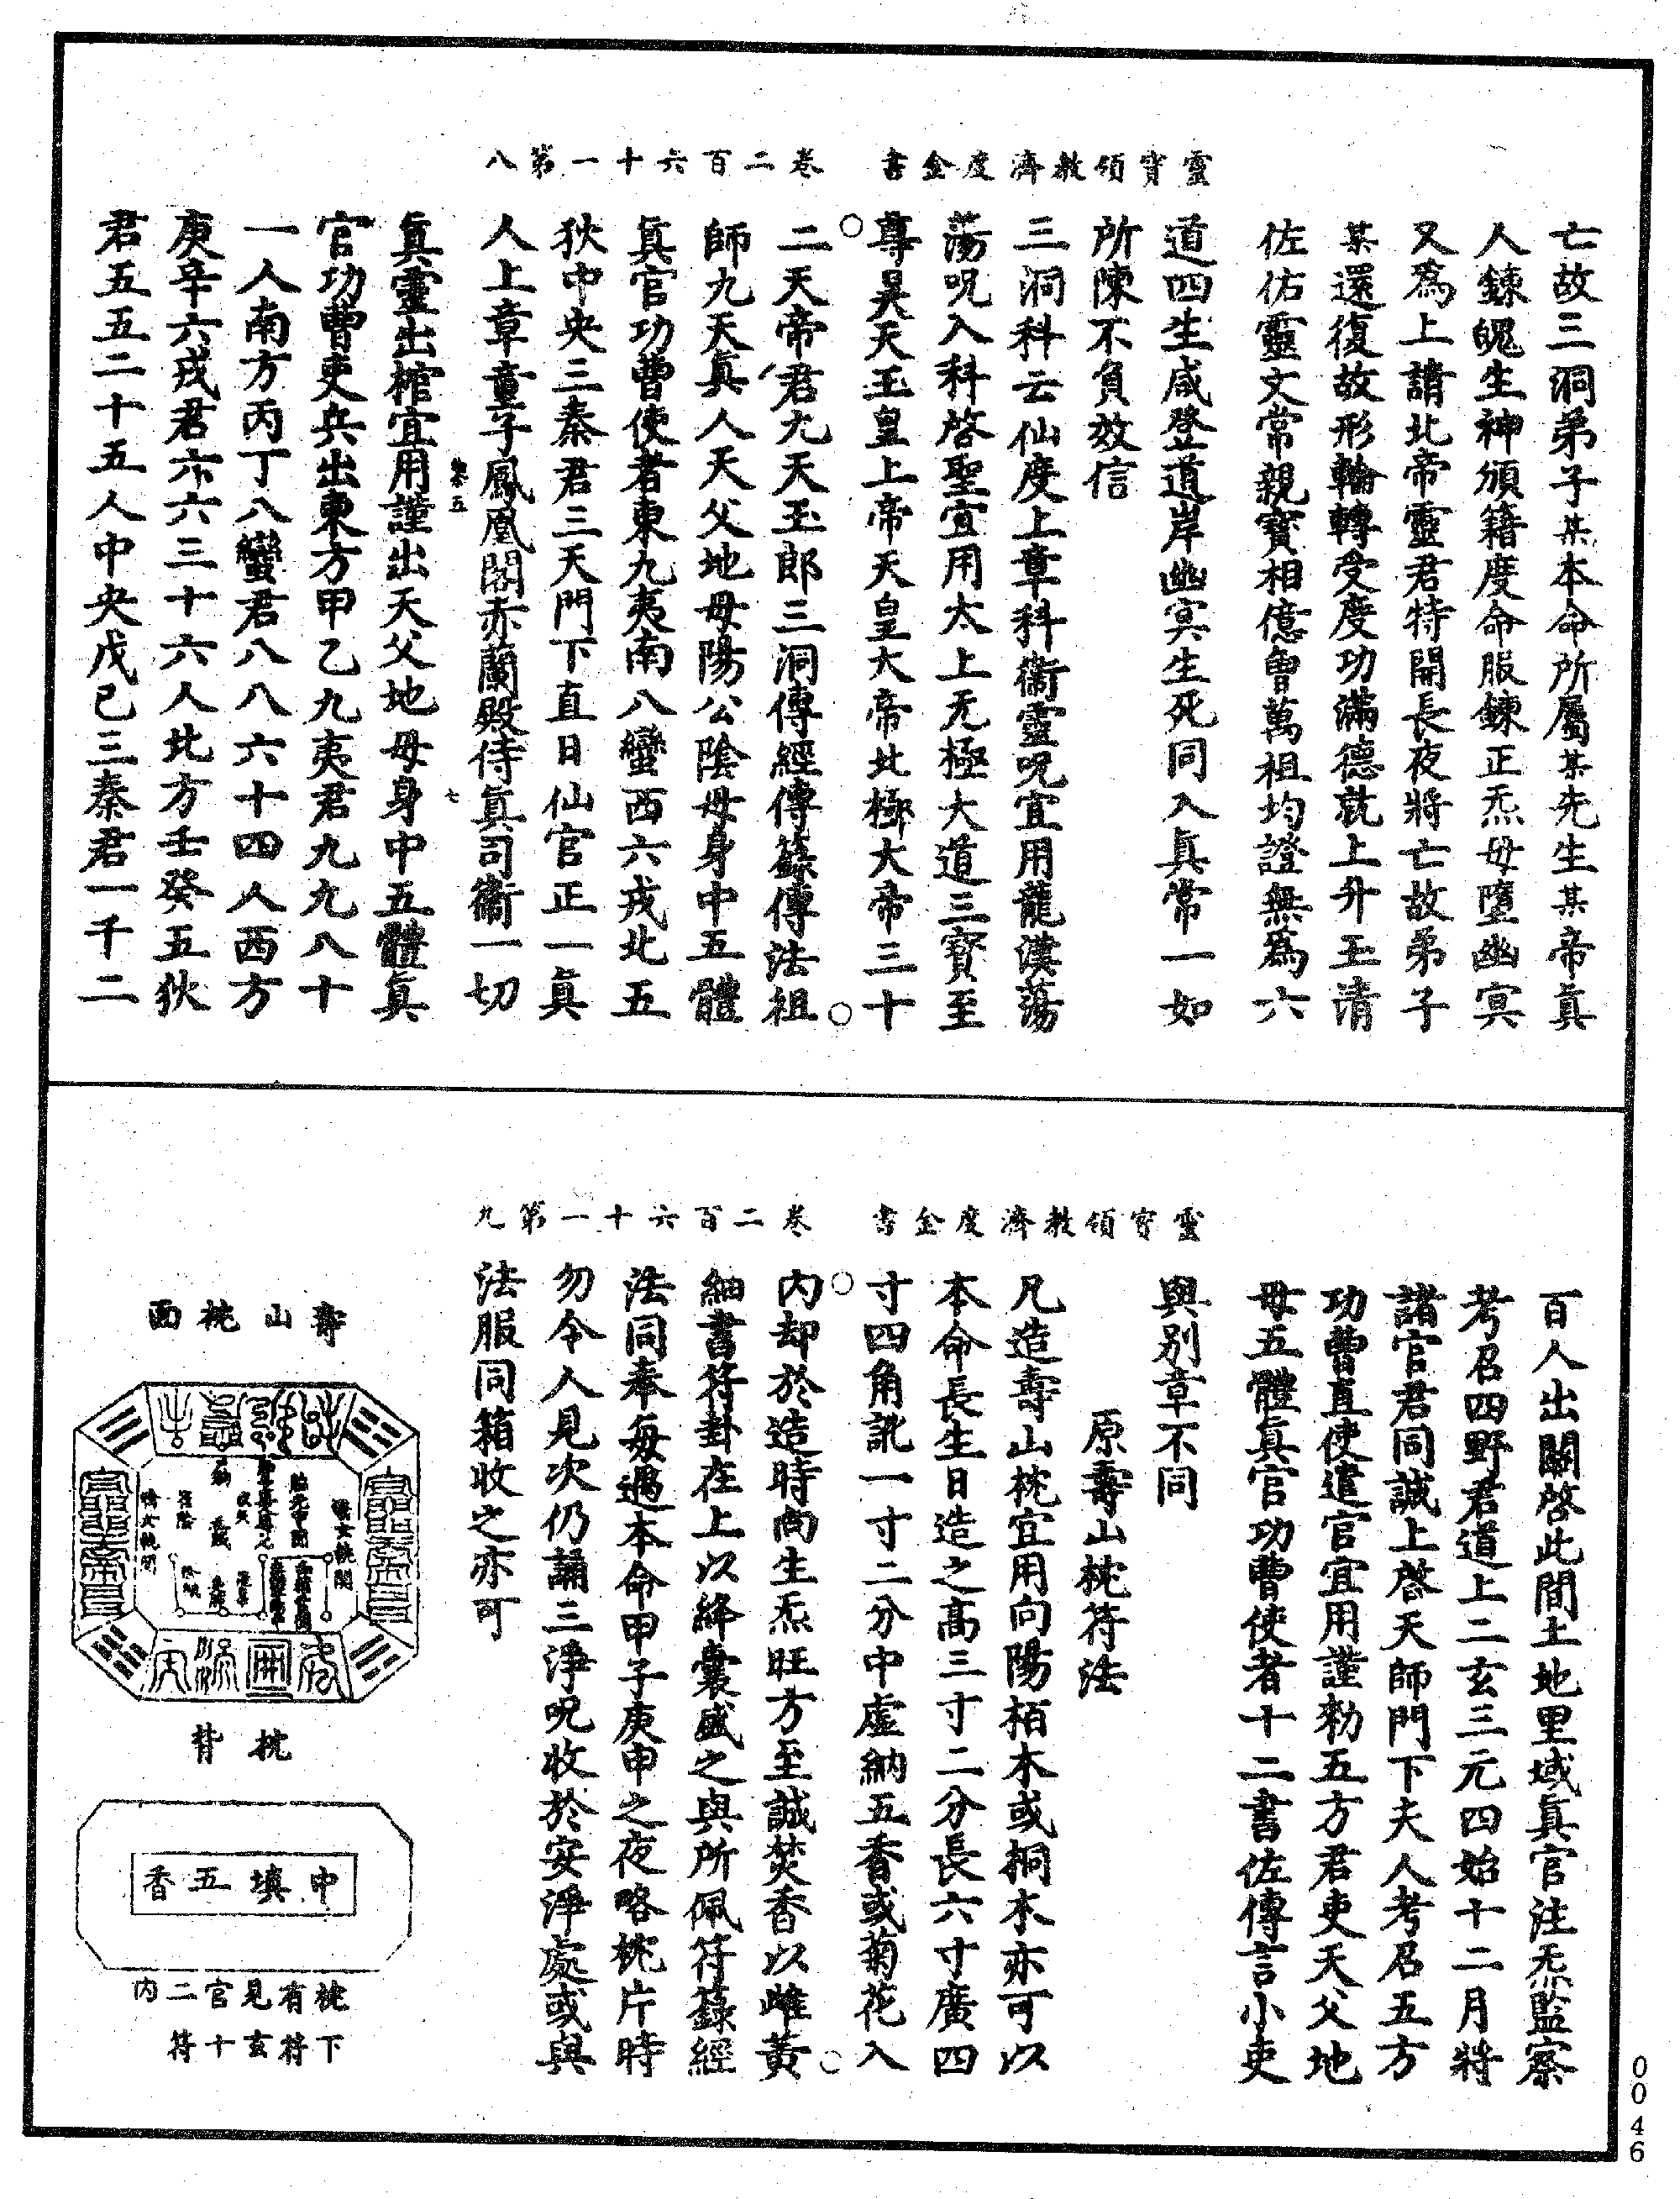 靈寶領教濟度金書　卷二百六十一第八
亡故三洞弟子某本命所屬某先生某帝真
人鍊魄生神頒籍度命服鍊正炁毋墮幽冥
又爲上請北帝靈君特開長夜將亡故弟子
某還復故形輪轉受度功滿德就上升玉清
佐佑靈文常親寶相億曾萬祖均證無爲六
道四生咸登道岸幽冥生死同入真常一如
所陳不負效信
三洞科云仙度上章科衞靈呪宜用龍漢蕩
蕩呪入科啓聖宜用太上无極大道三寶至
尊昊天玉皇上帝天皇大帝北極大帝三十
二天帝君九天玉郎三洞傳經傳籙傳法祖
師九天真人天父地母陽公陰母身中五體
真官功曹使者東九夷南八蠻西六戎北五
狄中央三秦君三天門下直日仙官正一真
人上章童子鳳凰閣赤蘭殿侍真司衞一切
真靈出棺宜用謹出天父地母身中五體真
官功曹吏兵出東方甲乙九夷君九九八十
一人南方丙丁八蠻君八八六十四人西方
庚辛六戎君六六三十六人北方壬癸五狄
君五五二十五人中央戊己三秦君一千二
靈寶領教濟度金書　卷二百六十一第九
百人出關啓此間土地里域真官注炁監察
考召四野君道上二玄三元四始十二月將
諸官君同誠上啓天師門下夫人考召五方
功曹直使遣官宜用謹勑五方君吏天父地
母五體真官功曹使者十二書佐傳言小吏
與別章不同
原壽山枕符法
凡造壽山枕宜用向陽栢木或桐木亦可以
本命長生日造之高三寸二分長六寸廣四
寸四角訛一寸二分中虛納五香或菊花入
内却於造時向生炁旺方至誠焚香以雌黃
細書符卦在上以絳囊盛之與所佩符籙經
法同奉每遇本命甲子庚申之夜略枕片時
勿令人見次仍誦三淨呪收於安淨處或與
法服同箱收之亦可
壽山枕面
枕背
中填五香
枕有見官二内
下符玄十符
0046